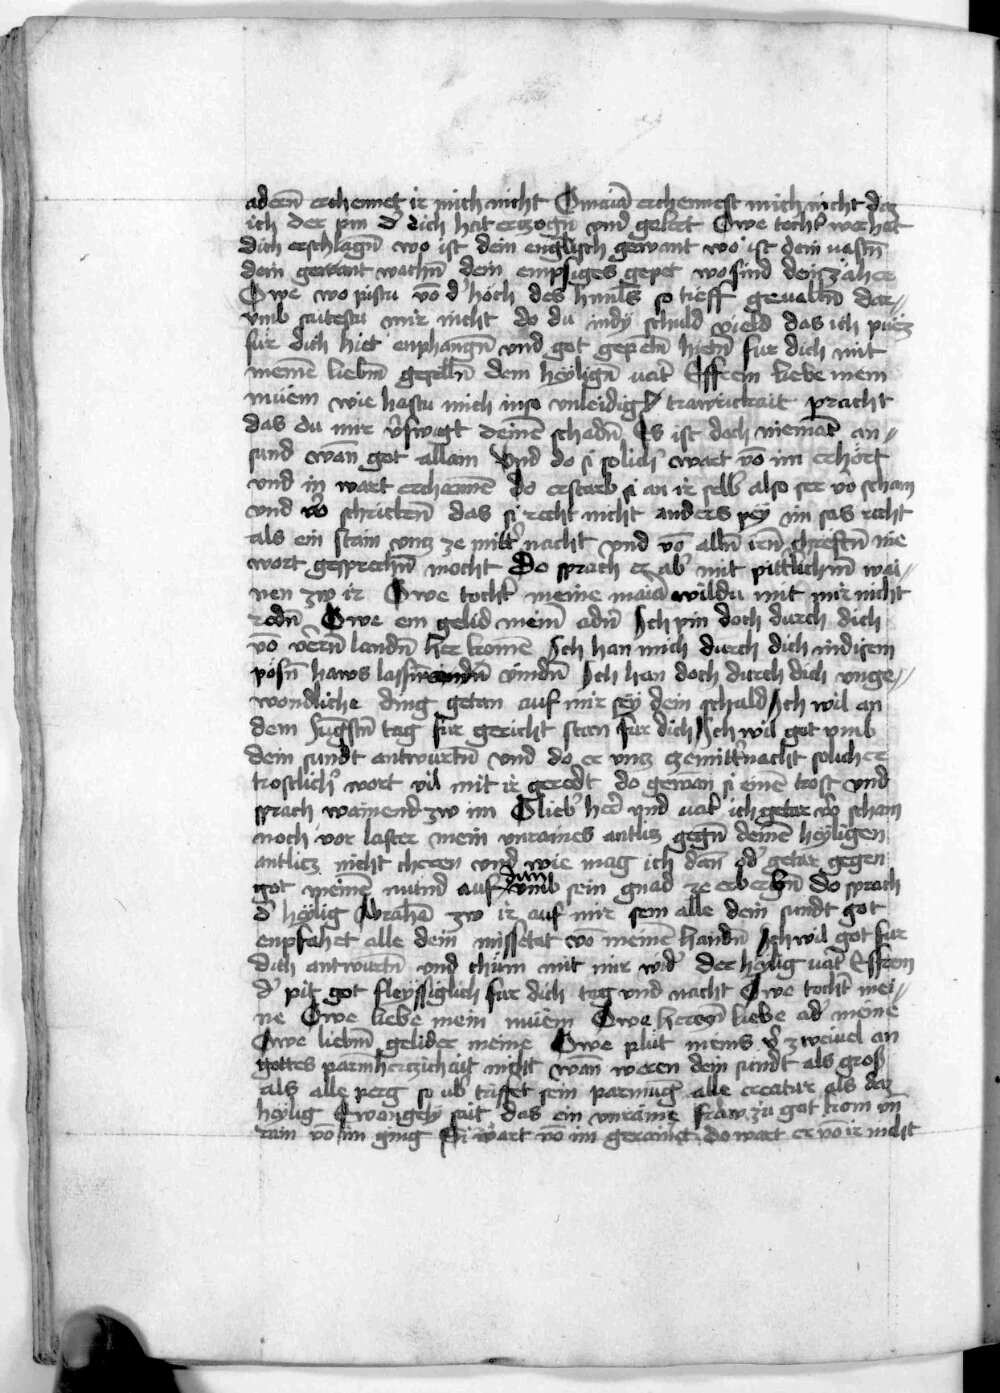 adern̄ erchennet ir mich nicht O maria erchennest mich nicht daz
ich der pin d' dich hat erzogn̄ vnd gelert Owe tocht' wer hat
dich erschlagn̄ wo ist dein englisch gewant wo ist dein vastn̄
dein gewant wachn̄ dein empsiges gepet wo sind dein zäher
Owe wo pistu võ d' höch des himls so tieff geualln̄ dar//
vmb saitestu mir nicht do du indy schuld vield das ich puez
für dich hiet enphangn̄ vnd got gepetn̄ hietn̄ fur dich mit
meinē liebm̄ geselln̄ dem heylign̄ vat' Effrem liebe mein
müem wie hastu mich in so vnleidige trawrickait pracht
das du mir v'swigt deinē schadn̄ Es ist doch niemāt an//
sund wān got allain Vnd do si solich' wart võ im erhört
vnd in wart erchennē do erstarb si an ir selb' also ser vō scham
vnd vō schrickn̄ das si recht nicht anders pey im sas recht
als ein stain vnz ze mitt' nacht vnd võ alln̄ irn̄ chreftn̄ nie
wort gesprechn̄ mocht Do sprach er ab' mit pitt'lichm̄ wai//
nen zw ir Owe tocht' meine maria wildu mit mir nicht
redn̄ Owe ein gelid meinr̄ adn̄ Ich pin doch durch dich
võ verrn̄ landn̄ her komē Ich han mich durch dich in disem
pösn̄ haws lassn̄ vindn̄ Ich han doch durch dich vnge//
wondliche ding getan auf mir sey dein schuld Ich wil an
dem Jungstn̄ tag fur gericht stan fur dich Ich wil got vmb
dein sundt antwurtn̄ vnd do er vnz ze mitt'nacht solicher
trostlich' wort vil mit ir geredt do gewan si einē trost vnd
sprach wainend zw im O lieb' her' vnd vat' ich getar vō scham
noch vor laster mein vnraines antlitz gegn̄ deinē heyligen
antlicz nicht cheren vnd wie mag ich dān od' getar gegen
got meinē mund auf tun vmb sein gnad ze erberbn̄ do sprach
d' heylig Abrahā zw ir auf mir sein alle dein sundt got
enpfahet alle dein missetat võ meinē handn̄ Ich wil got fur
dich antwurtn̄ vnd chum mit mir wid' der heylig vat' Effrem
d' pit got fleyssiglich fur dich tag vnd nacht Owe tocht' mei//
ne Owe liebe mein müem Owe herczn̄ liebe ad' meine
Owe liebm̄ gelider meine Owe plüt meins v' zweiuel an
gottes parmherczichait nicht wān weren dein sundt als gross
als alle perg so ub' triffet sein parmūg alle creatur als daz
heylig Ewangely sait das ein vnraine fraw zu got kom vn̄
rain võ im ging Si wart võ im gerainigt do wart er võ ir nicht